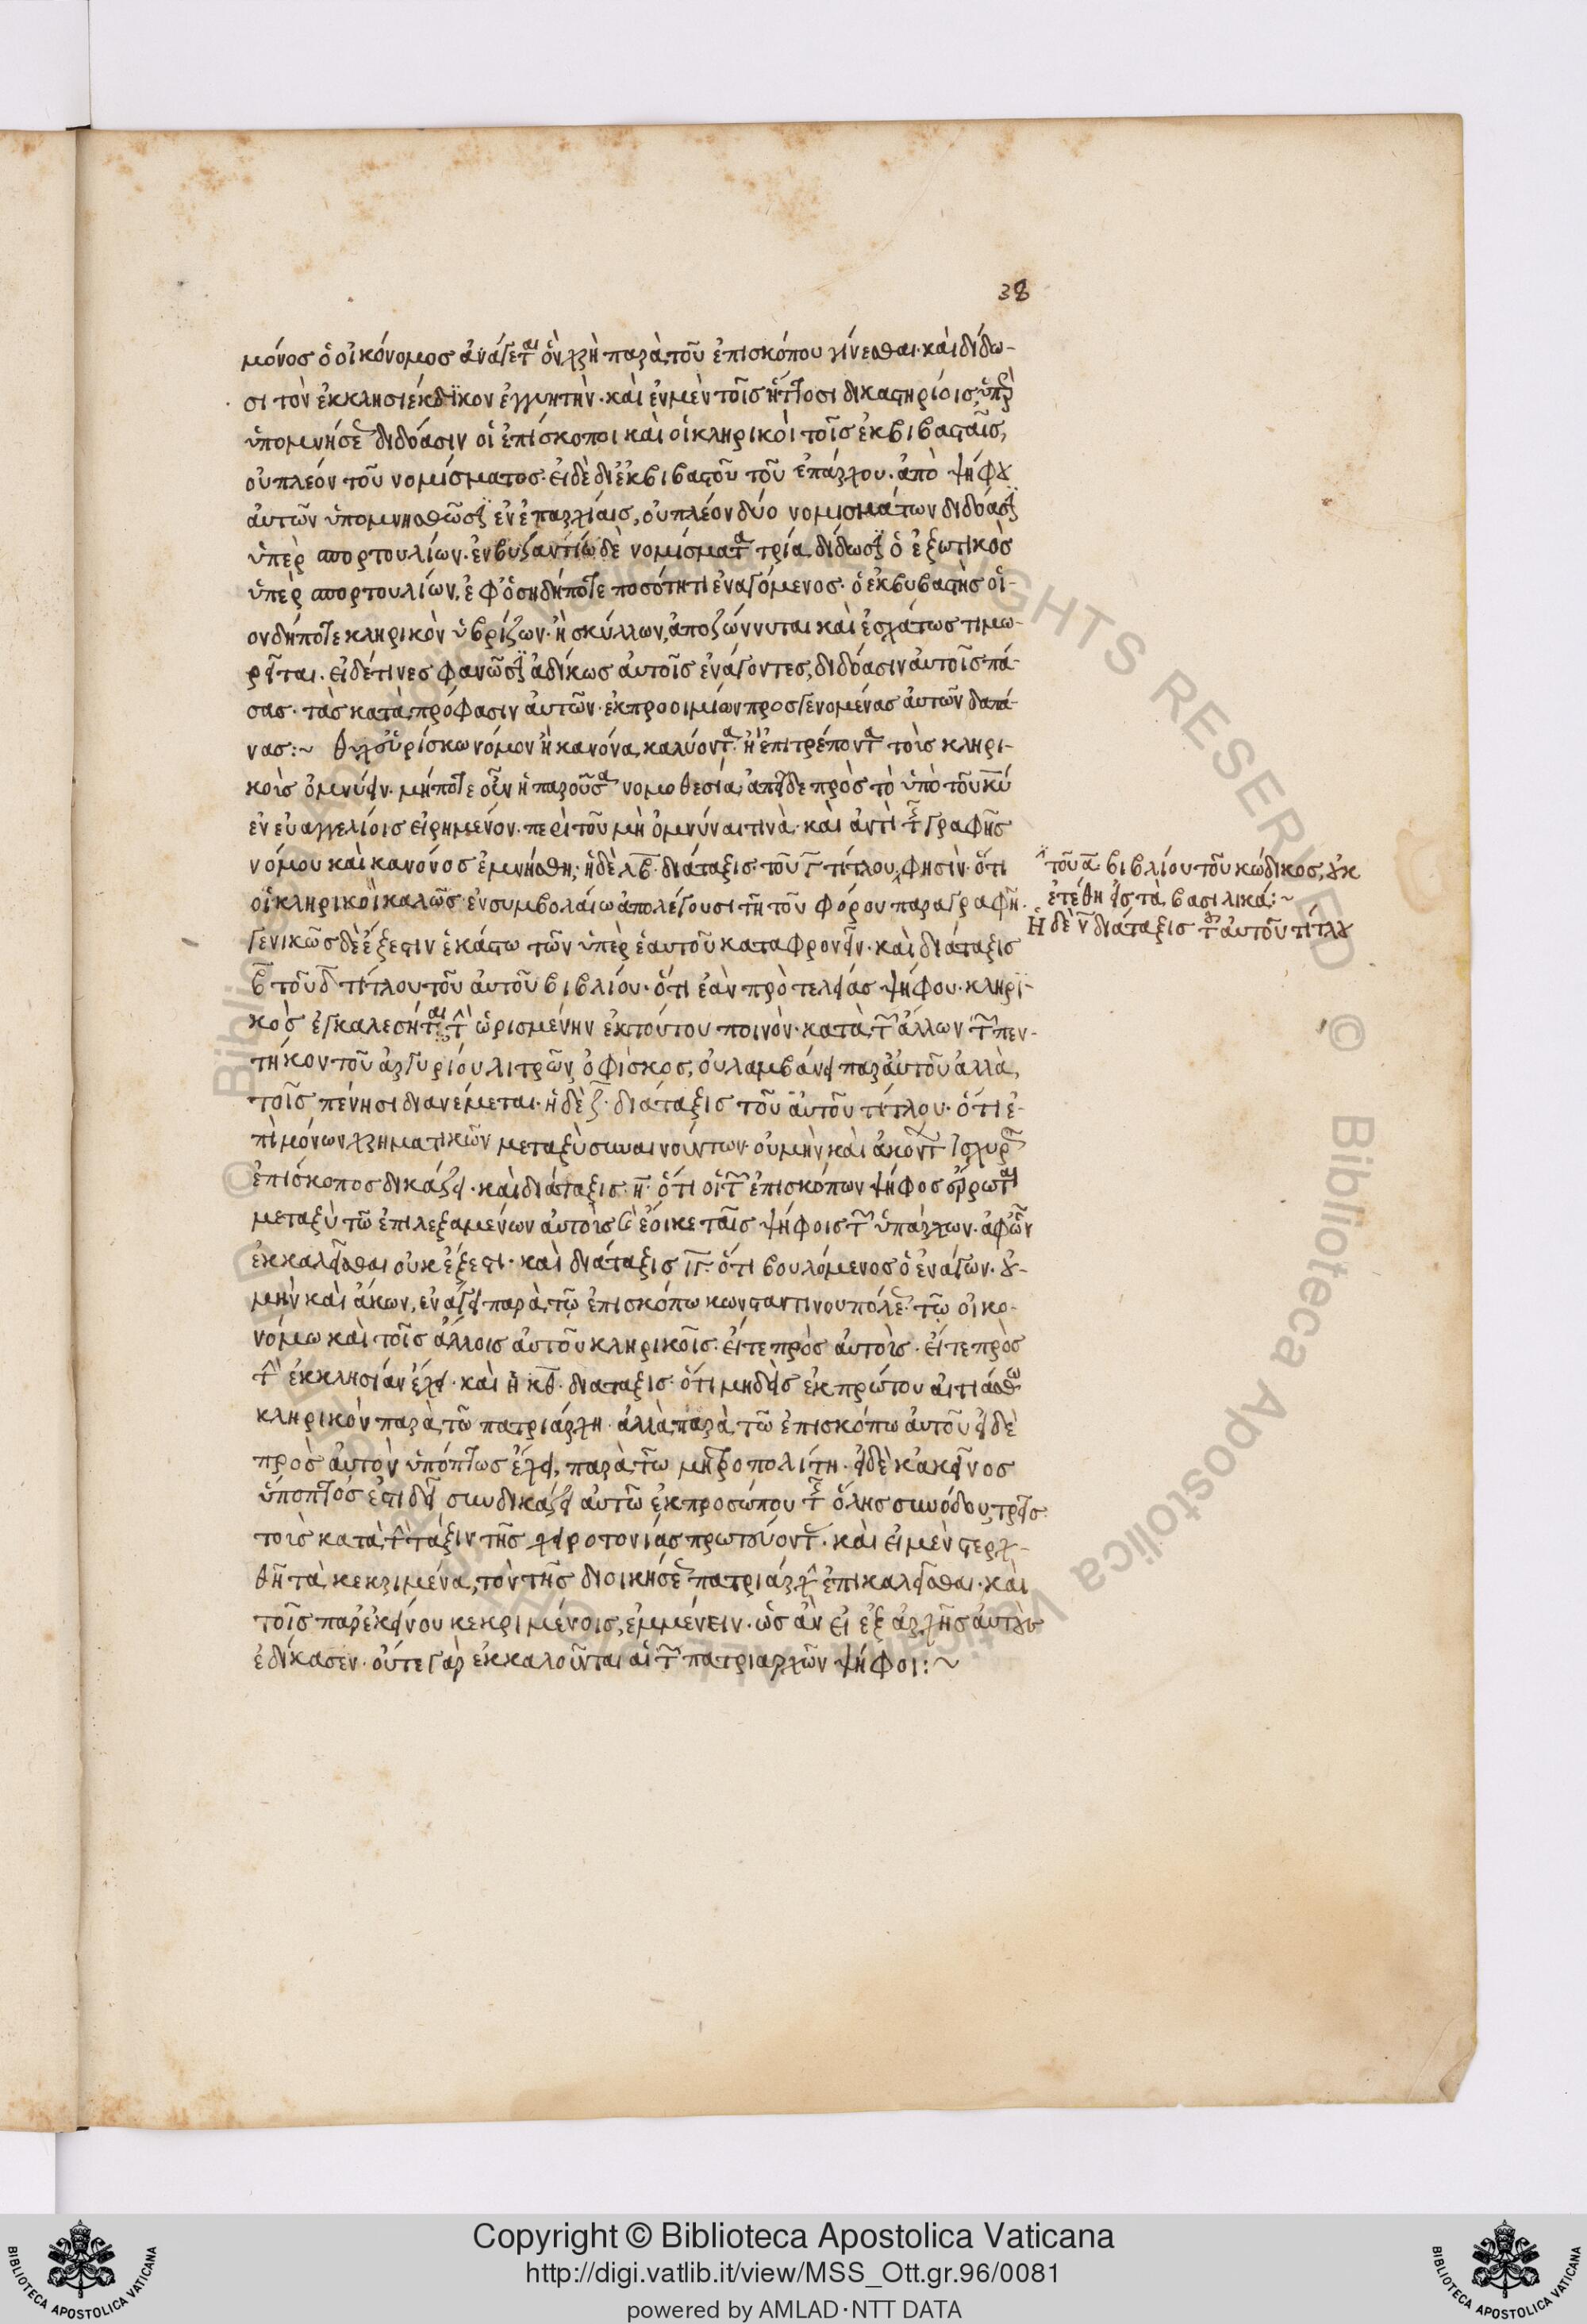 38
μόνος ὁ οἰκόνομος ἐνάγεται ὃν χρὴ παρὰ τοῦ ἐπισκόπου γίνεσθαι· καὶ δίδω-
σι τὸν ἐκκλησιέκδικον ἐγγυητὴν· καὶ ἐν μὲν τοῖς ἥττοσι δικαστηρίοις, ὑπὲρ
ὑπομνήσεως διδόασιν οἱ ἐπίσκοποι καὶ οἱ κληρικοὶ τοῖς ἐκβιβασταῖς,
οὐ πλέον τοῦ νομίσματος· εἰ δὲ δι' ἐκβιβαστοῦ τοῦ ἐπάρχου· ἀπὸ ψήφου
αὐτῶν ὑπομνησθῶσιν ἐν ἐπαρχίαις, οὐ πλέον δύο νομισμάτων διδόασιν
ὑπὲρ σπορτουλίων· ἐν βυζαντίω δὲ νομίσματα τρία δίδωσιν ὁ ἐξωτικὸς
ὑπὲρ σπορτουλίων, ἐφ' ὁσηδήποτε ποσότητι ἐναγόμενος· ὁ ἐκβιβαστὴς οἱ-
ονδήποτε κληρικὸν ὑβρίζων· ἢ σκύλλων, ἀποζώννυται καὶ ἐσχάτως τιμω-
ρεῖται· εἰ δέ τινες φανῶσιν ἀδίκως αὐτοῖς ἐνάγοντες, διδόασιν αὐτοῖς πά-
σας· τὰς κατὰ πρόφασιν αὐτῶν· ἐκ προοιμίων προσγενομένας αὐτῶν δαπά-
νας:~ εὑρίσκω νόμον ἢ κανόνα, καλύοντα· ἢ ἐπιτρέποντα τοῖς κληρι-
κοῖς ὀμνύειν· μήποτε οὖν ἡ παροῦσα νομοθεσία, ἀπεῖδε πρὸς τὸ ὑπὸ τοῦ κυ
ἐν εὐαγγελίοις εἰρημένον· περὶ τοῦ μὴ ὀμνύναι τινὰ· καὶ ἀντὶ τῆς γραφῆς
νόμου καὶ κανόνος ἐμνήσθη· ἡ δὲ λβ· διάταξις τοῦ γ τίτλου, φησὶν· ὅτι
οἱ κληρικοὶ καλῶς ἐν συμβολαίω ἀπολέγουσι τῆ τοῦ φόρου παραγραφῆ·
γενικῶς δὲ ἔξεστιν ἑκάστω τῶν ὑπὲρ ἑαυτοῦ καταφρονεῖν· καὶ διάταξις
β τοῦ δ τίτλου τοῦ αὐτοῦ βιβλίου· ὅτι ἐὰν πρὸ τελείας ψήφου· κληρι-
κὸς ἐγκαλεσήται τὴν ὡρισμένην ἐκ τούτου ποινὸν· κατὰ τῶν ἄλλων τῶν πεν-
τήκοντου ἀργυρίου λιτρῶν, ὁ φίσκος, οὐ λαμβάνει παρ' αὐτοῦ ἀλλὰ,
τοῖς πένησι διανέμεται· ἡ δὲ ζ· διάταξις τοῦ αὐτοῦ τίτλου· ὅτι ἐ-
πὶ μόνων χρηματικῶν μεταξὺ συναινούντων· οὐ μὴν καὶ ἀκόντων
ἐπίσκοπος δικάζει· καὶ διάταξις η· ὅτι οἱ τῶν ἐπισκόπων ψῆφος ἔρρωται
μεταξὺ τῶ ἐπιλεξαμένων αὐτοὺς ἔοικε ταῖς ψήφοις τῶν ὑπάρχων· ἀφ' ὧν
ἐκκαλεῖσθαι οὐκ ἔξεστι· καὶ διάταξις ιγ· ὅτι βουλόμενος ὁ ἐνάγων· οὐ
μὴν καὶ ἄκων, ἐνάγει παρὰ τῶ ἐπισκόπω κωνσταντινουπόλεως τῶ οἰκο-
νόμω καὶ τοῖς ἄλλοις αὐτοῦ κληρικοῖς· εἴτε πρὸς αὐτοὺς· εἴτε πρὸς
τὴν ἐκκλησίαν ἔχει· καὶ ἡ κθ· διάταξις· ὅτι μηδεὶς ἐκ πρώτου αἰτιάσθω
κληρικὸν παρὰ τῶ πατριάρχη· ἀλλὰ παρὰ τῶ ἐπισκόπω αὐτοῦ εἰ δὲ
πρὸς αὐτὸν ὑπόπτως ἔχει, παρὰ τῶ μητροπολίτη· εἰ δὲ κἀκεῖνος
ὕποπτός ἐστι δεῖ συνδικάζειν αὐτῶ ἐκ προσώπου τῆς ὅλης συνόδου, τρεῖς
τοὺς κατὰ τὴν τάξιν τῆς χειροτονίας πρωτεύοντας· καὶ εἰ μὲν στερχ-
θῆ τὰ κεκριμένα, τὸν τῆς διοικήσεως πατριάρχην ἐπικαλεῖσθαι· καὶ
τοῖς παρ' ἐκείνου κεκριμένοις, ἐμμένειν· ὡς ἂν εἰ ἐξ ἀρχῆς αὐτοὺς
ἐδίκασεν· οὔτε γὰρ ἐκκαλοῦνται αἱ τῶν πατριαρχῶν ψῆφοι:~
τοῦ α βιβλίου τοῦ κώδικος, οὐκ
ἐτέθη εἰς τὰ βασιλικά:~
Ἡ δὲ ν διάταξις τοῦ αὐτοῦ τίτλου
© Biblioteca Apostolica Vaticana
ALL RIGHTS RESERVED
Copyright © Biblioteca Apostolica Vaticana
http://digi.vatlib.it/view/MSS_Ott.gr.96/0081
powered by AMLAD·NTT DATA
BIBLIOTECA APOSTOLICA VATICANA
BIBLIOTECA APOSTOLICA VATICANA